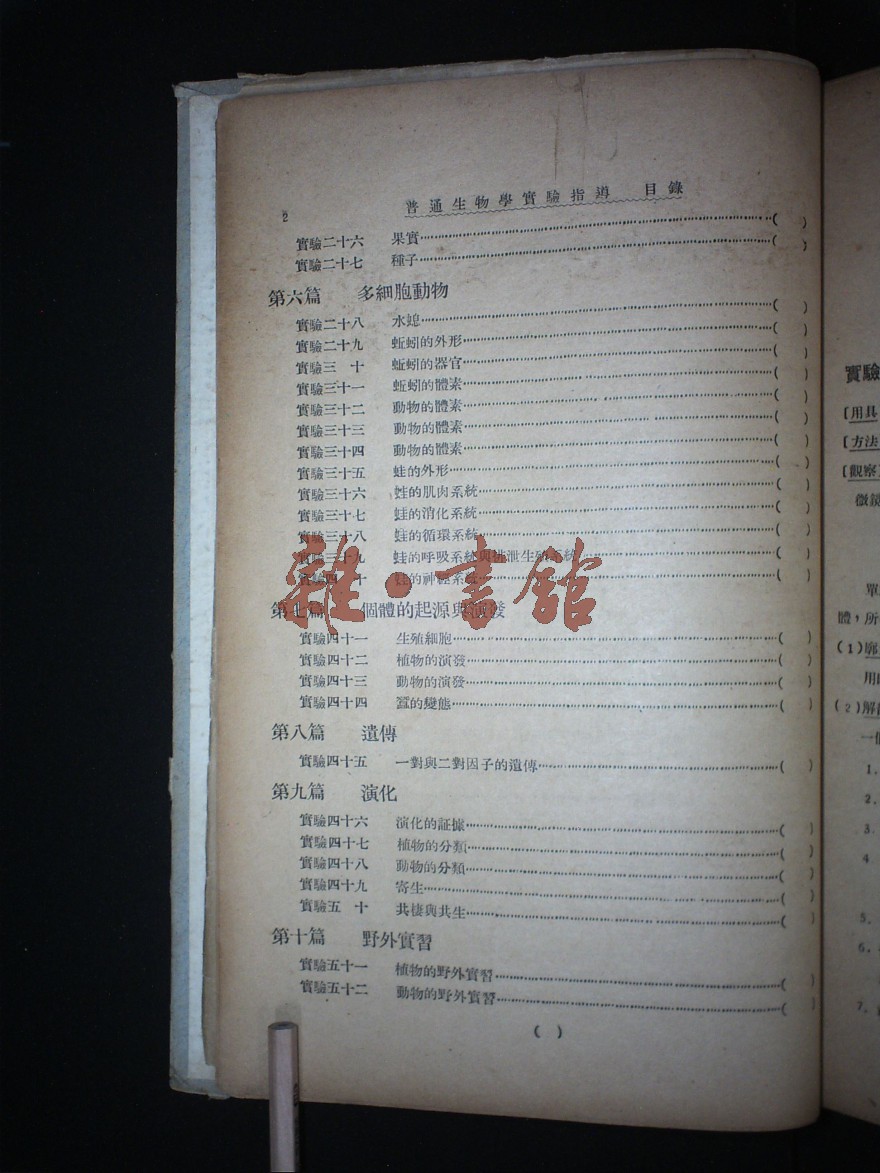 2 普通生物學實驗指導 目錄
實驗二十六 果實………( )
實驗二十七 種子………( )
第六篇 多細胞動物
實驗二十八 水螅………( )
實驗二十九 蚯蚓的外形………( )
實驗三 十 蚯蚓的器官………( )
實驗三十一 蚯蚓的體素………( )
實驗三十二 動物的體素………( )
實驗三十三 動物的體素………( )
實驗三十四 動物的體素………( )
實驗三十五 蛙的外形………( )
實驗三十六 蛙的肌肉系統………( )
實驗三十七 蛙的消化系統………( )
實驗三十八 蛙的循環系統………( )
實驗三十九 蛙的呼吸系統與排泄生殖系統………( )
實驗四 十 蛙的神經系統………( )
雜·書館
第七篇 個體的起源與演發
實驗四十一 生殖細胞………( )
實驗四十二 植物的演發………( )
實驗四十三 動物的演發………( )
實驗四十四 蠶的變態………( )
第八篇 遺傳
實驗四十五 一對與二對因子的遺傳………( )
第九篇 演化
實驗四十六 演化的証據………( )
實驗四十七 植物的分類………( )
實驗四十八 動物的分類………( )
實驗四十九 寄生………( )
實驗五 十 共棲與共生………( )
第十篇 野外實習
實驗五十一 植物的野外實習………( )
實驗五十二 動物的野外實習………( )
( )
實驗
〔用具
〔方法
〔觀察〕
微鏡
單
體，所
(1)廓
用
(2)解
一
1.
2.
3.
4
5.
6.
7.